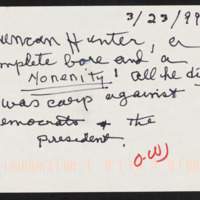 3/23/99
Duncan Hunter, a
complete bore and a
Nonenity! all he did
was carp against
Democrats & the
President.
OWJ